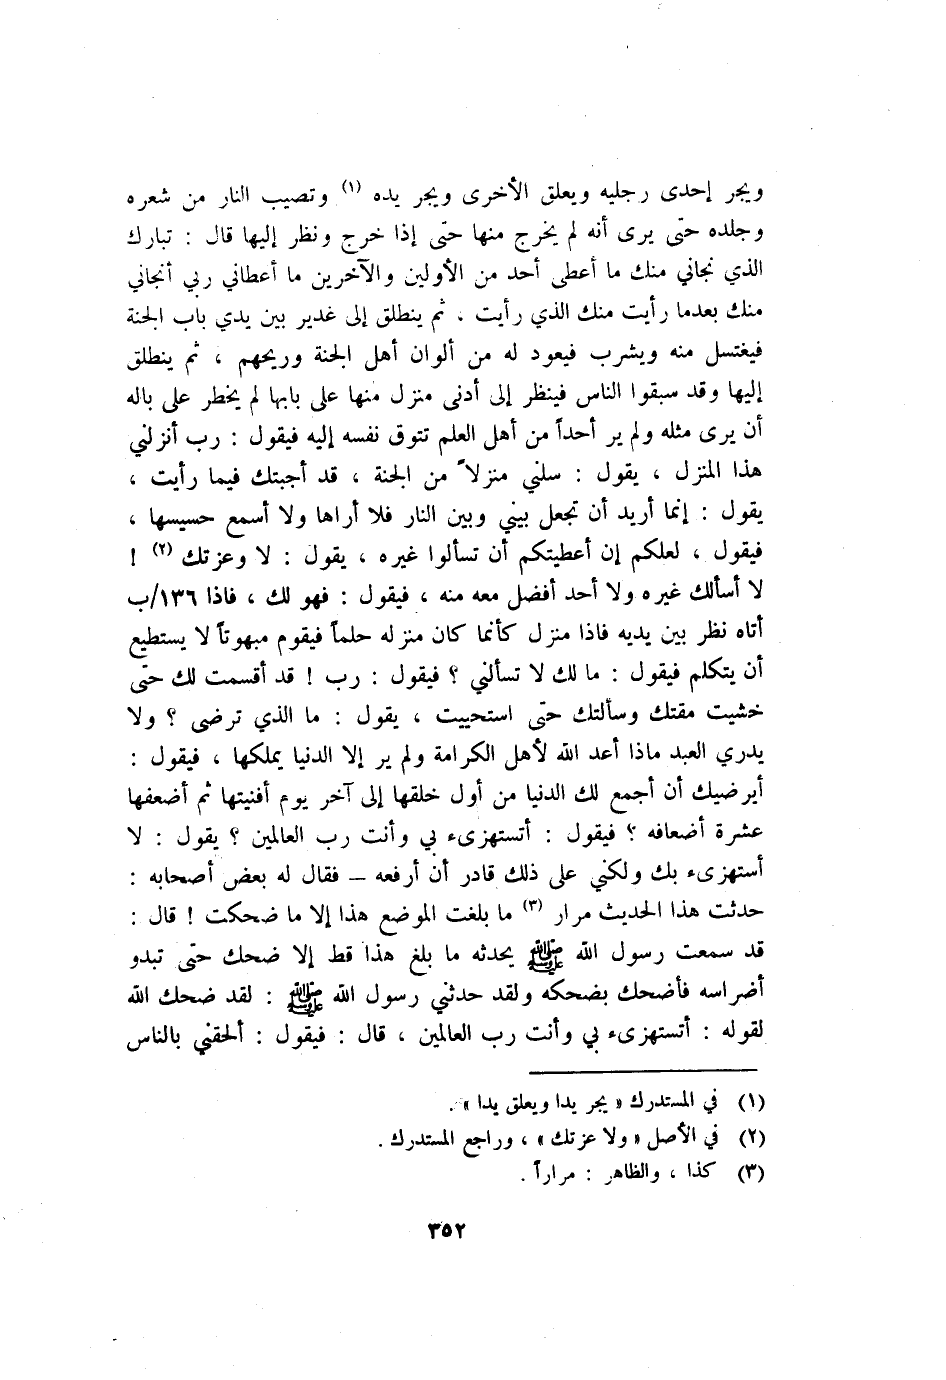 ويجر إحدى رجليه ويعلق الأخرى ويجر يده (١) وتصيب النار من شعره
وجلده حتى يرى أنه لم يخرج منها حتى إذا خرج ونظر إليها قال : تبارك
الذي نجاني منك ما أعطى أحد من الأولين والآخرين ما أعطاني ربي أنجاني
منك بعدما رأيت منك الذي رأيت ، ثم ينطلق إلى غدير بين يدي باب الجنة
فيغتسل منه ويشرب فيعود له من ألوان أهل الجنة وريحهم ، ثم ينطلق
إليها وقد سبقوا الناس فينظر إلى أدنى منزل منها على بابها لم يخطر على باله
أن يرى مثله ولم ير أحداً من أهل العلم تتوق نفسه إليه فيقول : رب أنزلني
هذا المنزل ، يقول : سلني منزلاً من الجنة ، قد أجبتك فيما رأيت ،
يقول : إنما أريد أن تجعل بيني وبين النار فلا أراها ولا أسمع حسيسها ،
فيقول ، لعلكم إن أعطيتكم أن تسألوا غيره ، يقول : لا وعزتك (٢) !
لا أسألك غيره ولا أحد أفضل معه منه ، فيقول : فهو لك ، فاذا ١٣٦/ب
أتاه نظر بين يديه فاذا منزل كأنما كان منزله حلماً فيقوم مبهوتاً لا يستطيع
أن يتكلم فيقول : ما لك لا تسألني ؟ فيقول : رب ! قد أقسمت لك حتى
خشيت مقتك وسألتك حتى استحييت ، يقول : ما الذي ترضى ؟ ولا
يدري العبد ماذا أعد الله لأهل الكرامة ولم ير إلا الدنيا يملكها ، فيقول :
أيرضيك أن أجمع لك الدنيا من أول خلقها إلى آخر يوم أفنيتها ثم أضعفها
عشرة أضعافه ؟ فيقول : أتستهزىء بي وأنت رب العالمين ؟ يقول : لا
أستهزىء بك ولكني على ذلك قادر أن أرفعه – فقال له بعض أصحابه :
حدثت هذا الحديث مرار (٣) ما بلغت الموضع هذا إلا ما ضحكت ! قال :
قد سمعت رسول الله ﷺ يحدثه ما بلغ هذا قط إلا ضحك حتى تبدو
أضراسه فأضحك بضحكه ولقد حدثني رسول الله ﷺ : لقد ضحك الله
لقوله : أتستهزىء بي وأنت رب العالمين ، قال : فيقول : ألحقني بالناس
(١) في المستدرك « يجر يدا ويعلق يدا » .
(٢) في الأصل « ولا عزتك » ، وراجع المستدرك .
(٣) كذا ، والظاهر : مراراً .
٣٥٢